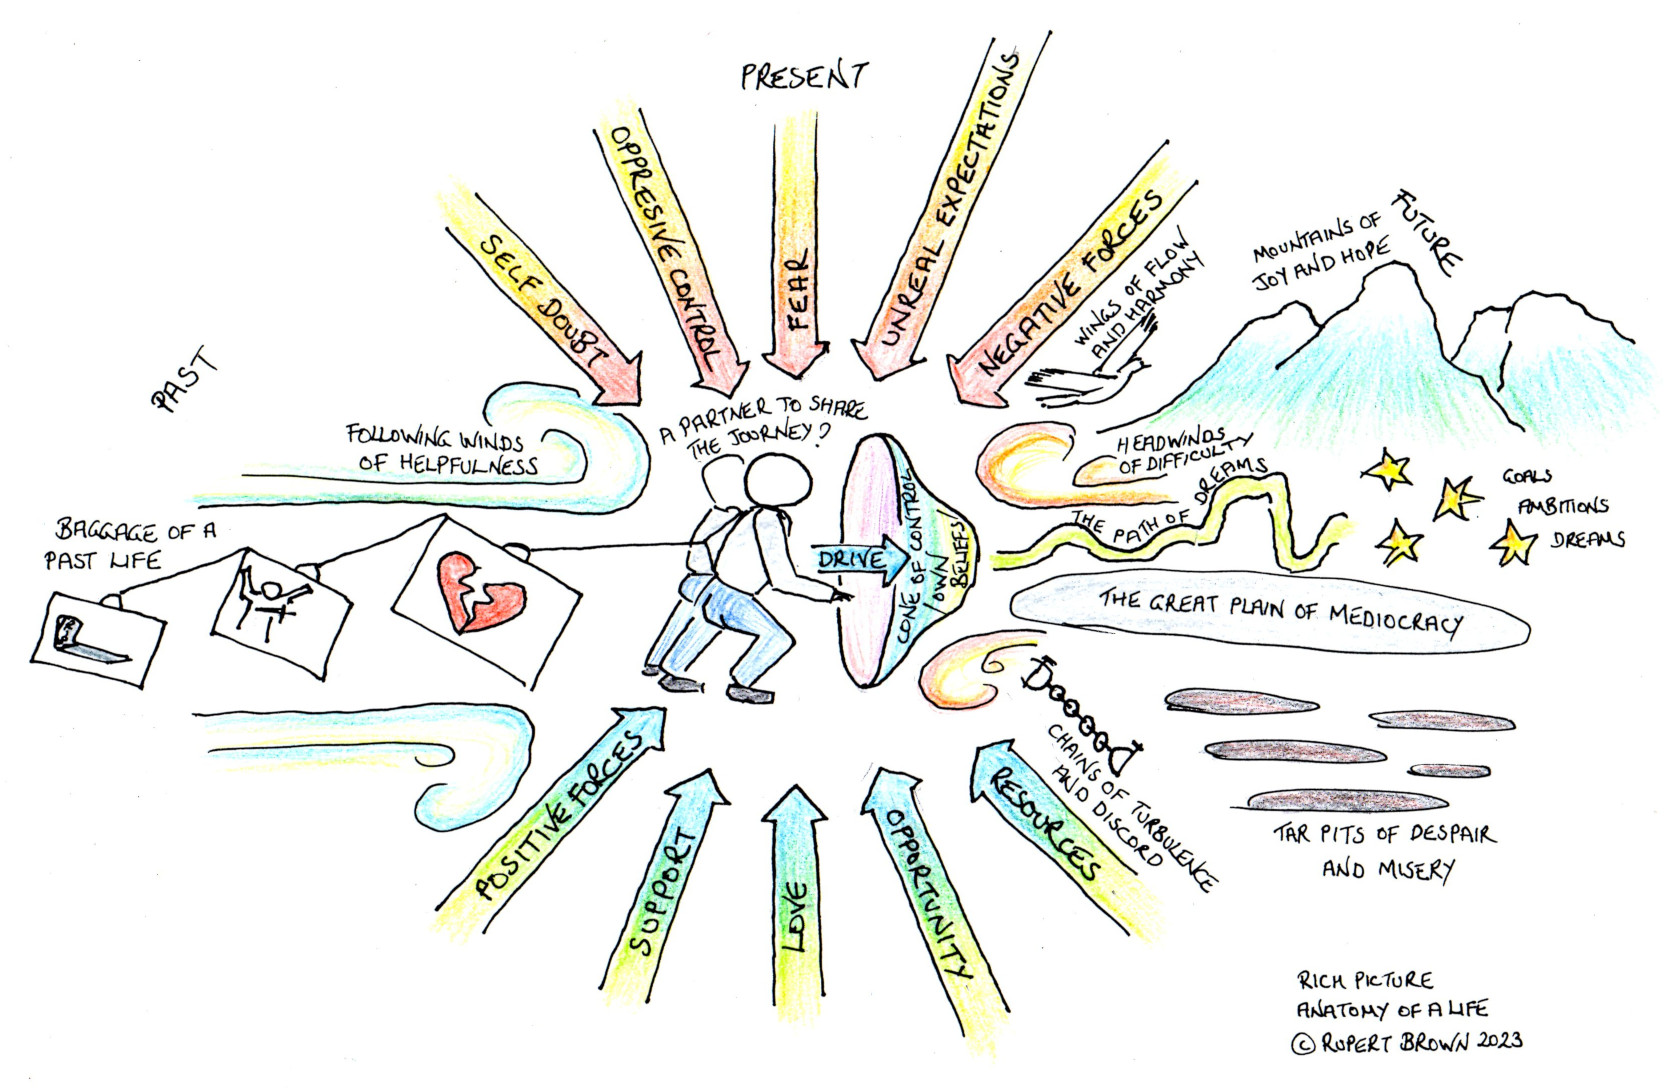 PRESENT
PAST
FUTURE
SELF DOUBT
OPPRESIVE CONTROL
FEAR
UNREAL EXPECTATIONS
NEGATIVE FORCES
WINGS OF FLOW
AND HARMONY
MOUNTAINS OF
JOY AND HOPE
FOLLOWING WINDS
OF HELPFULNESS
A PARTNER TO SHARE
THE JOURNEY?
HEADWINDS
OF DIFFICULTY
THE PATH OF DREAMS
GOALS
AMBITIONS
DREAMS
BAGGAGE OF A
PAST LIFE
DRIVE
CONE OF CONTROL
/OWN
BELIEFS
THE GREAT PLAIN OF MEDIOCRACY
CHAINS OF TURBULENCE
AND DISCORD
TAR PITS OF DESPAIR
AND MISERY
POSITIVE FORCES
SUPPORT
LOVE
OPPORTUNITY
RESOURCES
RICH PICTURE
ANATOMY OF A LIFE
© RUPERT BROWN 2023